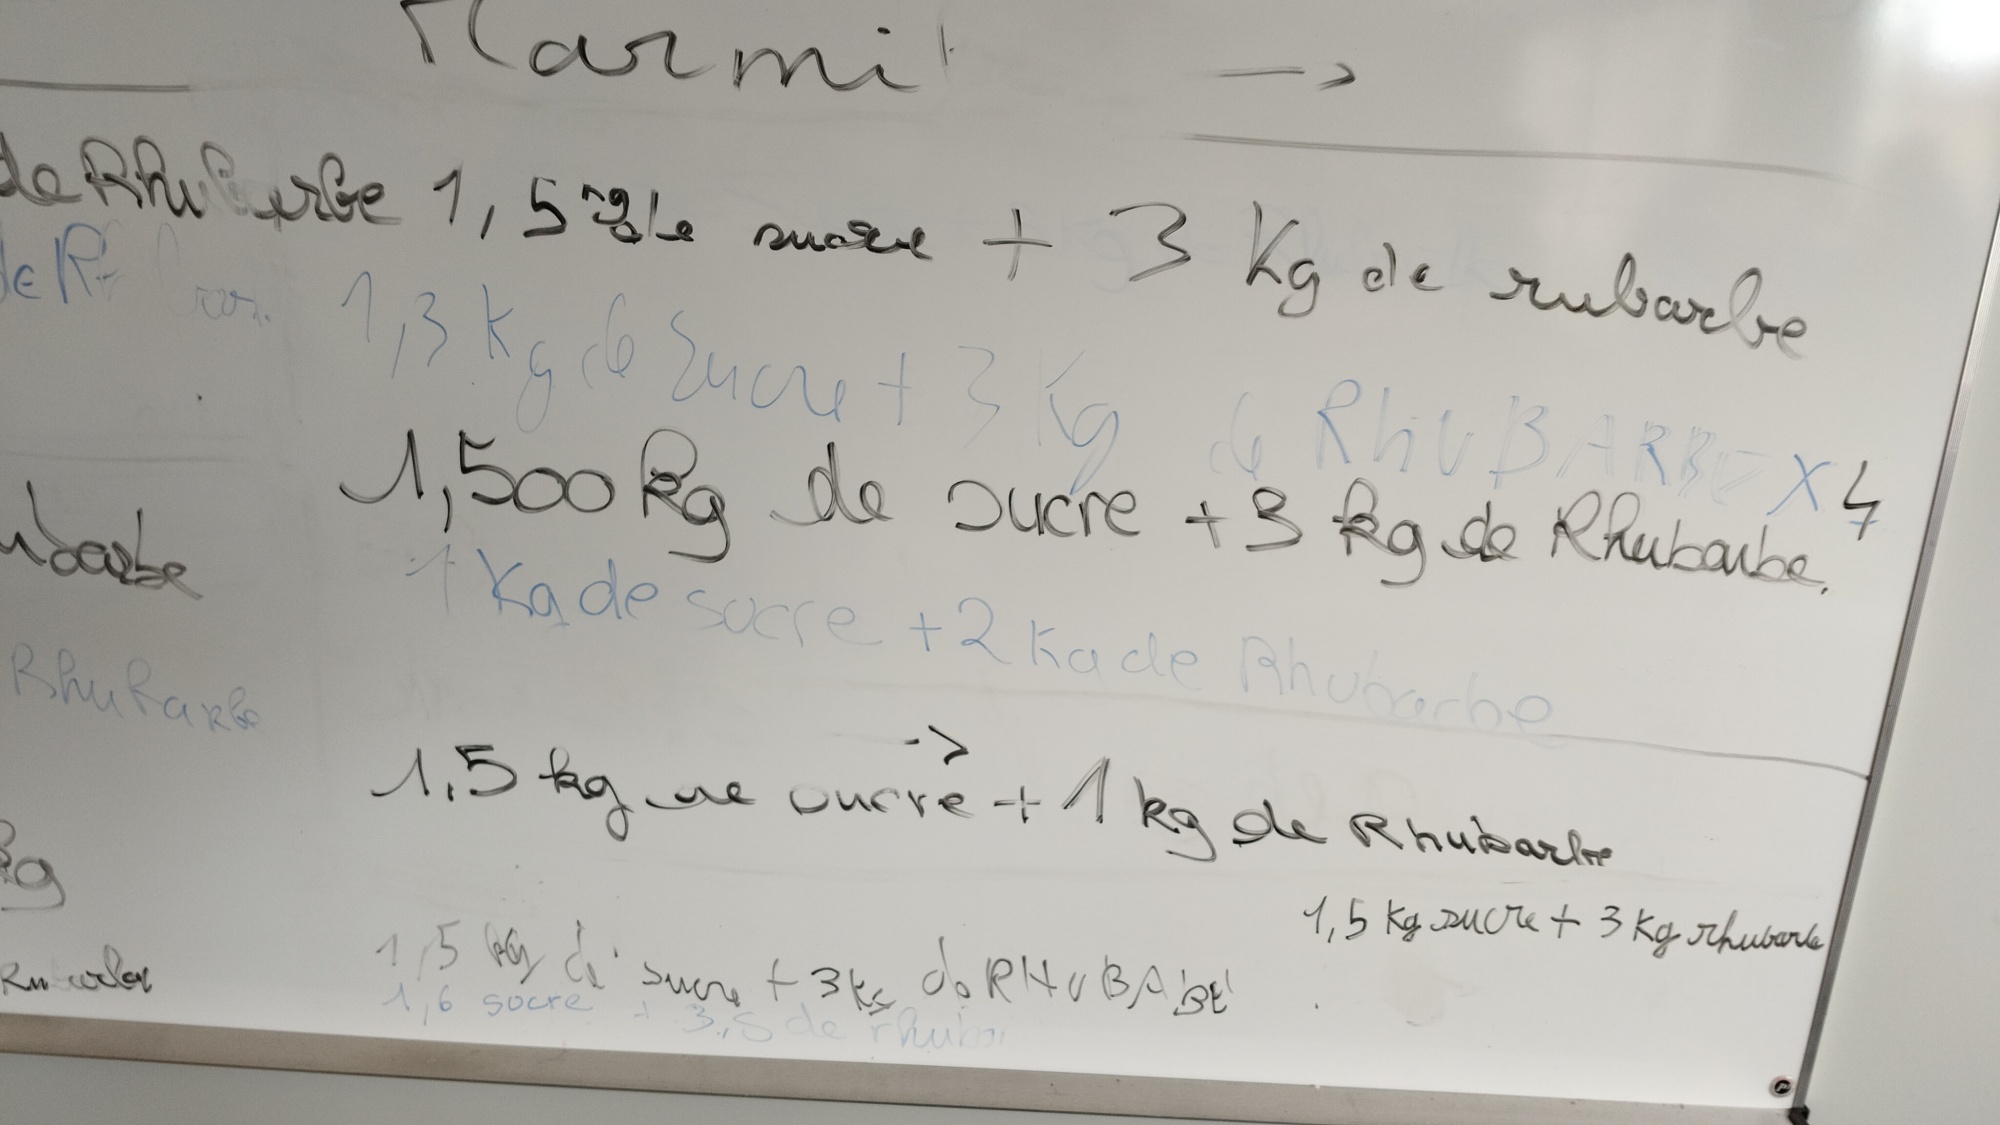 Marmit →
de Rhubarbe 1,5 kg de sucre + 3 Kg de rubarbe
de 1,3 Kg de Sucre + 3 Kg de RHUBARBE X 4
1,500 kg de sucre + 3 kg de Rhubarbe.
ubarbe
1 Kg de socre + 2 Kg de Rhubarbe
Rhubarbe
→
1,5 kg de sucre + 1 kg de Rhubarbe
kg
1,5 Kg sucre + 3 Kg rhubarbe
1,5 kg de sucre + 3 kg de RHUBARBE
1,6 socre + 3,5 de rhubar